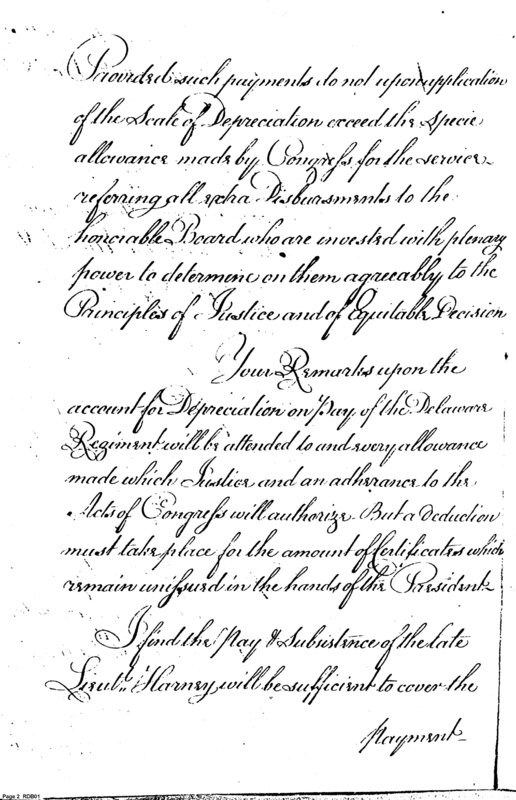 Provided such payments do not upon application
of the Scale of Depreciation exceed the specie
allowance made by Congress for the service
referring all extra Disbursments to the
honorable Board who are invested with plenary
power to determine on them agreeably to the
Principles of Justice and of Equitable Decision
Your Remarks upon the
account for Depreciation on Pay of the Delaware
Regiment will be attended to and every allowance
made which Justice and an adherance to the
Acts of Congress will authorize But a deduction
must take place for the amount of Certificates which
remain unissued in the hands of the President
I find the Pay & Subsistence of the late
Lieut. Harney will be sufficient to cover the
payment
Page 2 RDB01